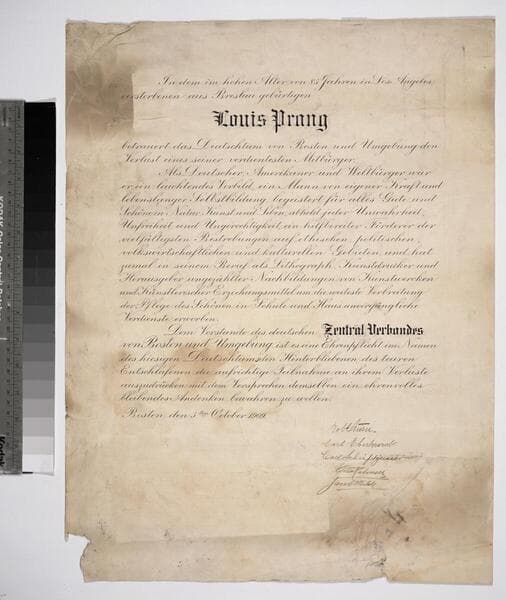 In dem im hohen Alter von 85 Jahren in Los Angelos
verstorbenen aus Breslau gebürtigen
Louis Prang
betrauert das Deutschtum von Boston und Umgebung den
Verlust eines seiner verdientesten Mitbürger.
Als Deutscher, Amerikaner und Weltbürger war
er ein leuchtendes Vorbild, ein Mann von eigener Kraft und
lebenslanger Selbstbildung, begeistert für alles Gute und
Schöne in Natur, Kunst und Leben, abhold jeder Unwahrheit,
Unfreiheit und Ungerechtigkeit, ein hilfbereiter Förderer der
vielfältigsten Bestrebungen auf ethischen, politischen,
volkswirtschaftlichen und kulturellen Gebieten, und hat
zumal in seinem Beruf als Lithograph, Kunstdrucker und
Herausgeber ungezählter Nachbildungen von Kunstwerken
und künstlerischer Erziehungsmittel um die weiteste Verbreitung
der Pflege des Schönen in Schule und Haus unvergängliche
Verdienste erworben.
Dem Vorstande des deutschen Zentral Verbandes
von Boston und Umgebung ist es eine Ehrenpflicht im Namen
des hiesigen Deutschtums den Hinterbliebenen des teuren
Entschlafenen die aufrichtige Teilnahme an ihrem Verluste
auszudrücken mit dem Versprechen demselben ein ehrenvolles
bleibendes Andenken bewahren zu wollen.
Boston, den 5ten October 1909.
Carl Eberhard
KODAK
Kodak